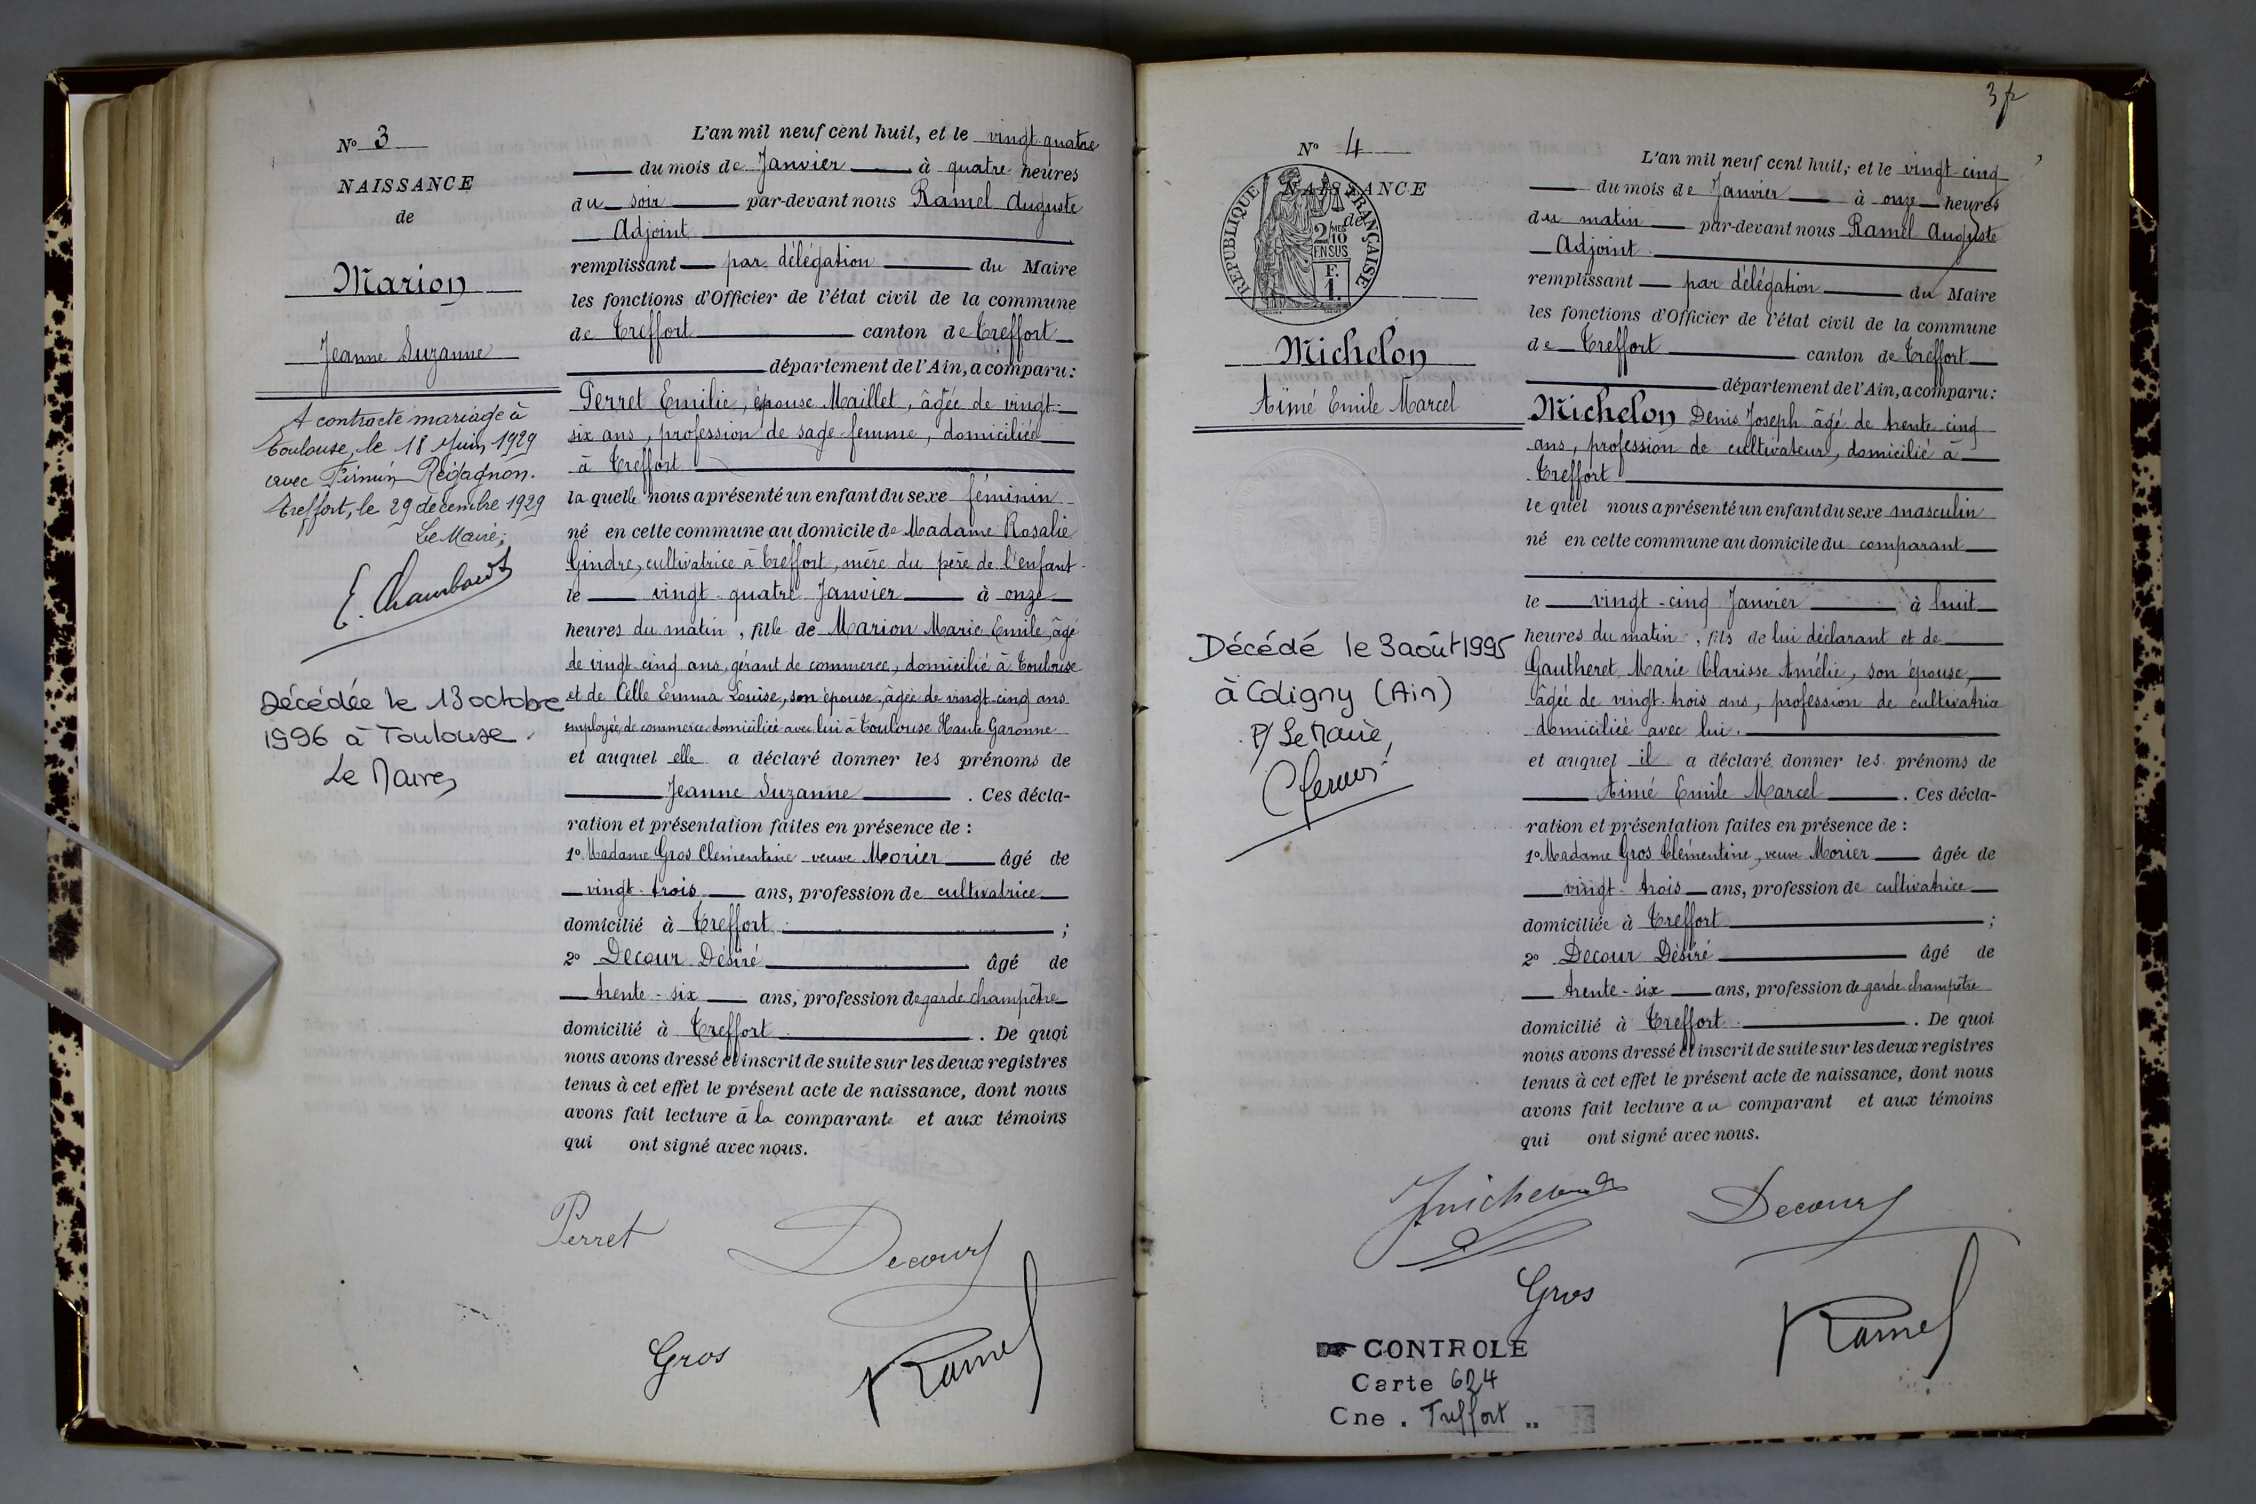 N° 3
NAISSANCE
de
Marion
Jeanne Suzanne
A contracté mariage à
Toulouse, le 18 Juin 1929
avec Firmin
Treffort, le 29 décembre 1929
Le Maire,
E. Chambard
Décédée le 13 octobre
1996 à Toulouse.
Le Maire,
L'an mil neuf cent huit, et le vingt-quatre
du mois de Janvier à quatre heures
du soir par-devant nous Ramel Auguste
Adjoint
remplissant par délégation du Maire
les fonctions d'Officier de l'état civil de la commune
de Treffort canton de Treffort
département de l'Ain, a comparu :
Perret Emilie, épouse Maillet, âgée de vingt-
six ans, profession de sage-femme, domiciliée
à Treffort
la quelle nous a présenté un enfant du sexe féminin
né en cette commune au domicile de Madame Rosalie
Gindre, cultivatrice à Treffort, mère du père de l'enfant
le vingt-quatre Janvier à onze
heures du matin, fille de Marion Marie Emile, âgé
de vingt-cinq ans, gérant de commerce, domicilié à Toulouse
et de Celle Emma Louise, son épouse, âgée de vingt-cinq ans
employée de commerce domiciliée avec lui à Toulouse Haute Garonne
et auquel elle a déclaré donner les prénoms de
Jeanne Suzanne . Ces décla-
ration et présentation faites en présence de :
1° Madame Gros Clémentine veuve Morier âgé de
vingt-trois ans, profession de cultivatrice
domicilié à Treffort ;
2° Decour Désiré âgé de
trente-six ans, profession de garde champêtre
domicilié à Treffort . De quoi
nous avons dressé et inscrit de suite sur les deux registres
tenus à cet effet le présent acte de naissance, dont nous
avons fait lecture à la comparante et aux témoins
qui ont signé avec nous.
Perret
Decour
Gros
Ramel
N° 4
NAISSANCE
de
RÉPUBLIQUE FRANÇAISE
2/10
EN SUS
F.
1.
Michelon
Aimé Emile Marcel
Décédé le 3 août 1995
à Coligny (Ain)
P/ Le Maire,
L'an mil neuf cent huit, et le vingt-cinq
du mois de Janvier à onze heures
du matin par-devant nous Ramel Auguste
Adjoint
remplissant par délégation du Maire
les fonctions d'Officier de l'état civil de la commune
de Treffort canton de Treffort
département de l'Ain, a comparu :
Michelon Denis Joseph âgé de trente cinq
ans, profession de cultivateur, domicilié à
Treffort
le quel nous a présenté un enfant du sexe masculin
né en cette commune au domicile du comparant
le vingt-cinq Janvier à huit
heures du matin, fils de lui déclarant et de
Gautheret Marie Clarisse Amélie, son épouse,
âgée de vingt-trois ans, profession de cultivatrice
domiciliée avec lui.
et auquel il a déclaré donner les prénoms de
Aimé Emile Marcel . Ces décla-
ration et présentation faites en présence de :
1° Madame Gros Clémentine, veuve Morier âgée de
vingt-trois ans, profession de cultivatrice
domiciliée à Treffort ;
2° Decour Désiré âgé de
trente-six ans, profession de garde champêtre
domicilié à Treffort . De quoi
nous avons dressé et inscrit de suite sur les deux registres
tenus à cet effet le présent acte de naissance, dont nous
avons fait lecture au comparant et aux témoins
qui ont signé avec nous.
Michelon
Decour
Gros
Ramel
CONTROLE
Carte 624
Cne . Treffort